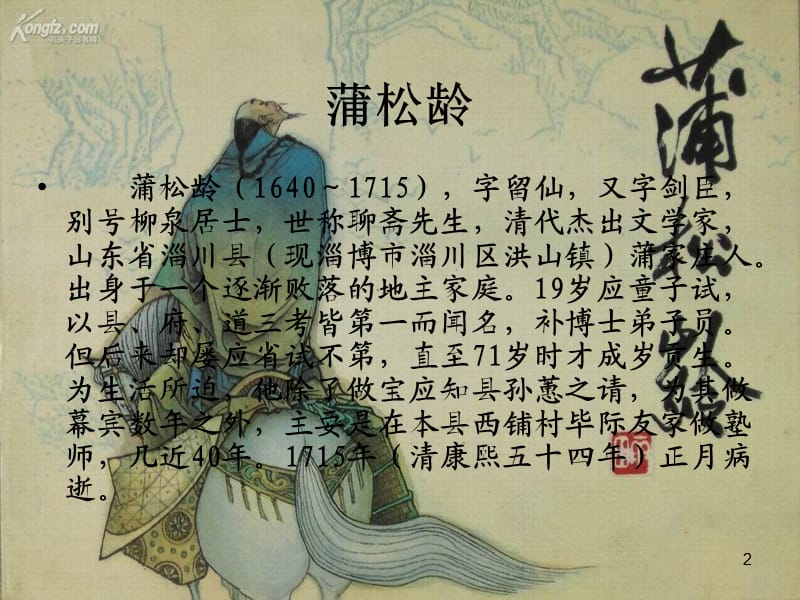 Kongfz.com
孔夫子旧书网
蒲松龄
• 蒲松龄（1640～1715），字留仙，又字剑臣，
别号柳泉居士，世称聊斋先生，清代杰出文学家，
山东省淄川县（现淄博市淄川区洪山镇）蒲家庄人。
出身于一个逐渐败落的地主家庭。19岁应童子试，
以县、府、道三考皆第一而闻名，补博士弟子员。
但后来却屡应省试不第，直至71岁时才成岁贡生。
为生活所迫，他除了做宝应知县孙蕙之请，为其做
幕宾数年之外，主要是在本县西铺村毕际友家做塾
师，几近40年。1715年（清康熙五十四年）正月病
逝。
蒲松龄
2